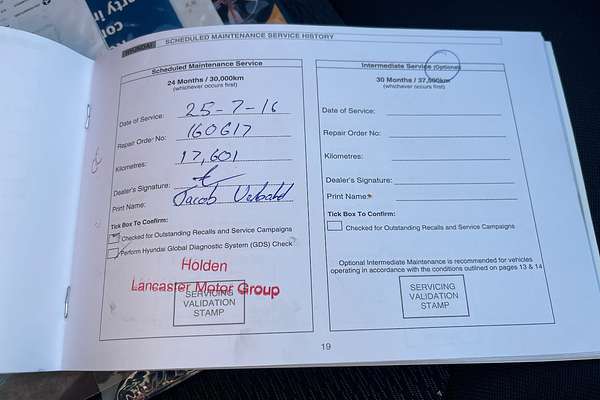 HYUNDAI SCHEDULED MAINTENANCE SERVICE HISTORY
Scheduled Maintenance Service
24 Months / 30,000km
(whichever occurs first)
Date of Service: 25-7-16
Repair Order No: 160617
Kilometres: 17,601
Dealer's Signature:
Print Name: Jacob
Tick Box To Confirm:
Checked for Outstanding Recalls and Service Campaigns
Perform Hyundai Global Diagnostic System (GDS) Check
Holden
Lancaster Motor Group
SERVICING
VALIDATION
STAMP
Intermediate Service (Optional)
30 Months / 37,500km
(whichever occurs first)
Date of Service:
Repair Order No:
Kilometres:
Dealer's Signature:
Print Name:
Tick Box To Confirm:
Checked for Outstanding Recalls and Service Campaigns
Optional Intermediate Maintenance is recommended for vehicles
operating in accordance with the conditions outlined on pages 13 & 14
SERVICING
VALIDATION
STAMP
19